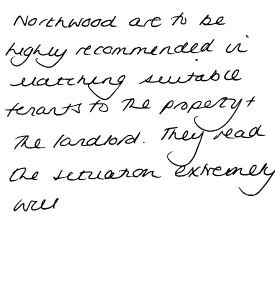 Northwood are to be
highly recommended in
matching suitable
tenants to the property +
the landlord. They read
the situation extremely
well